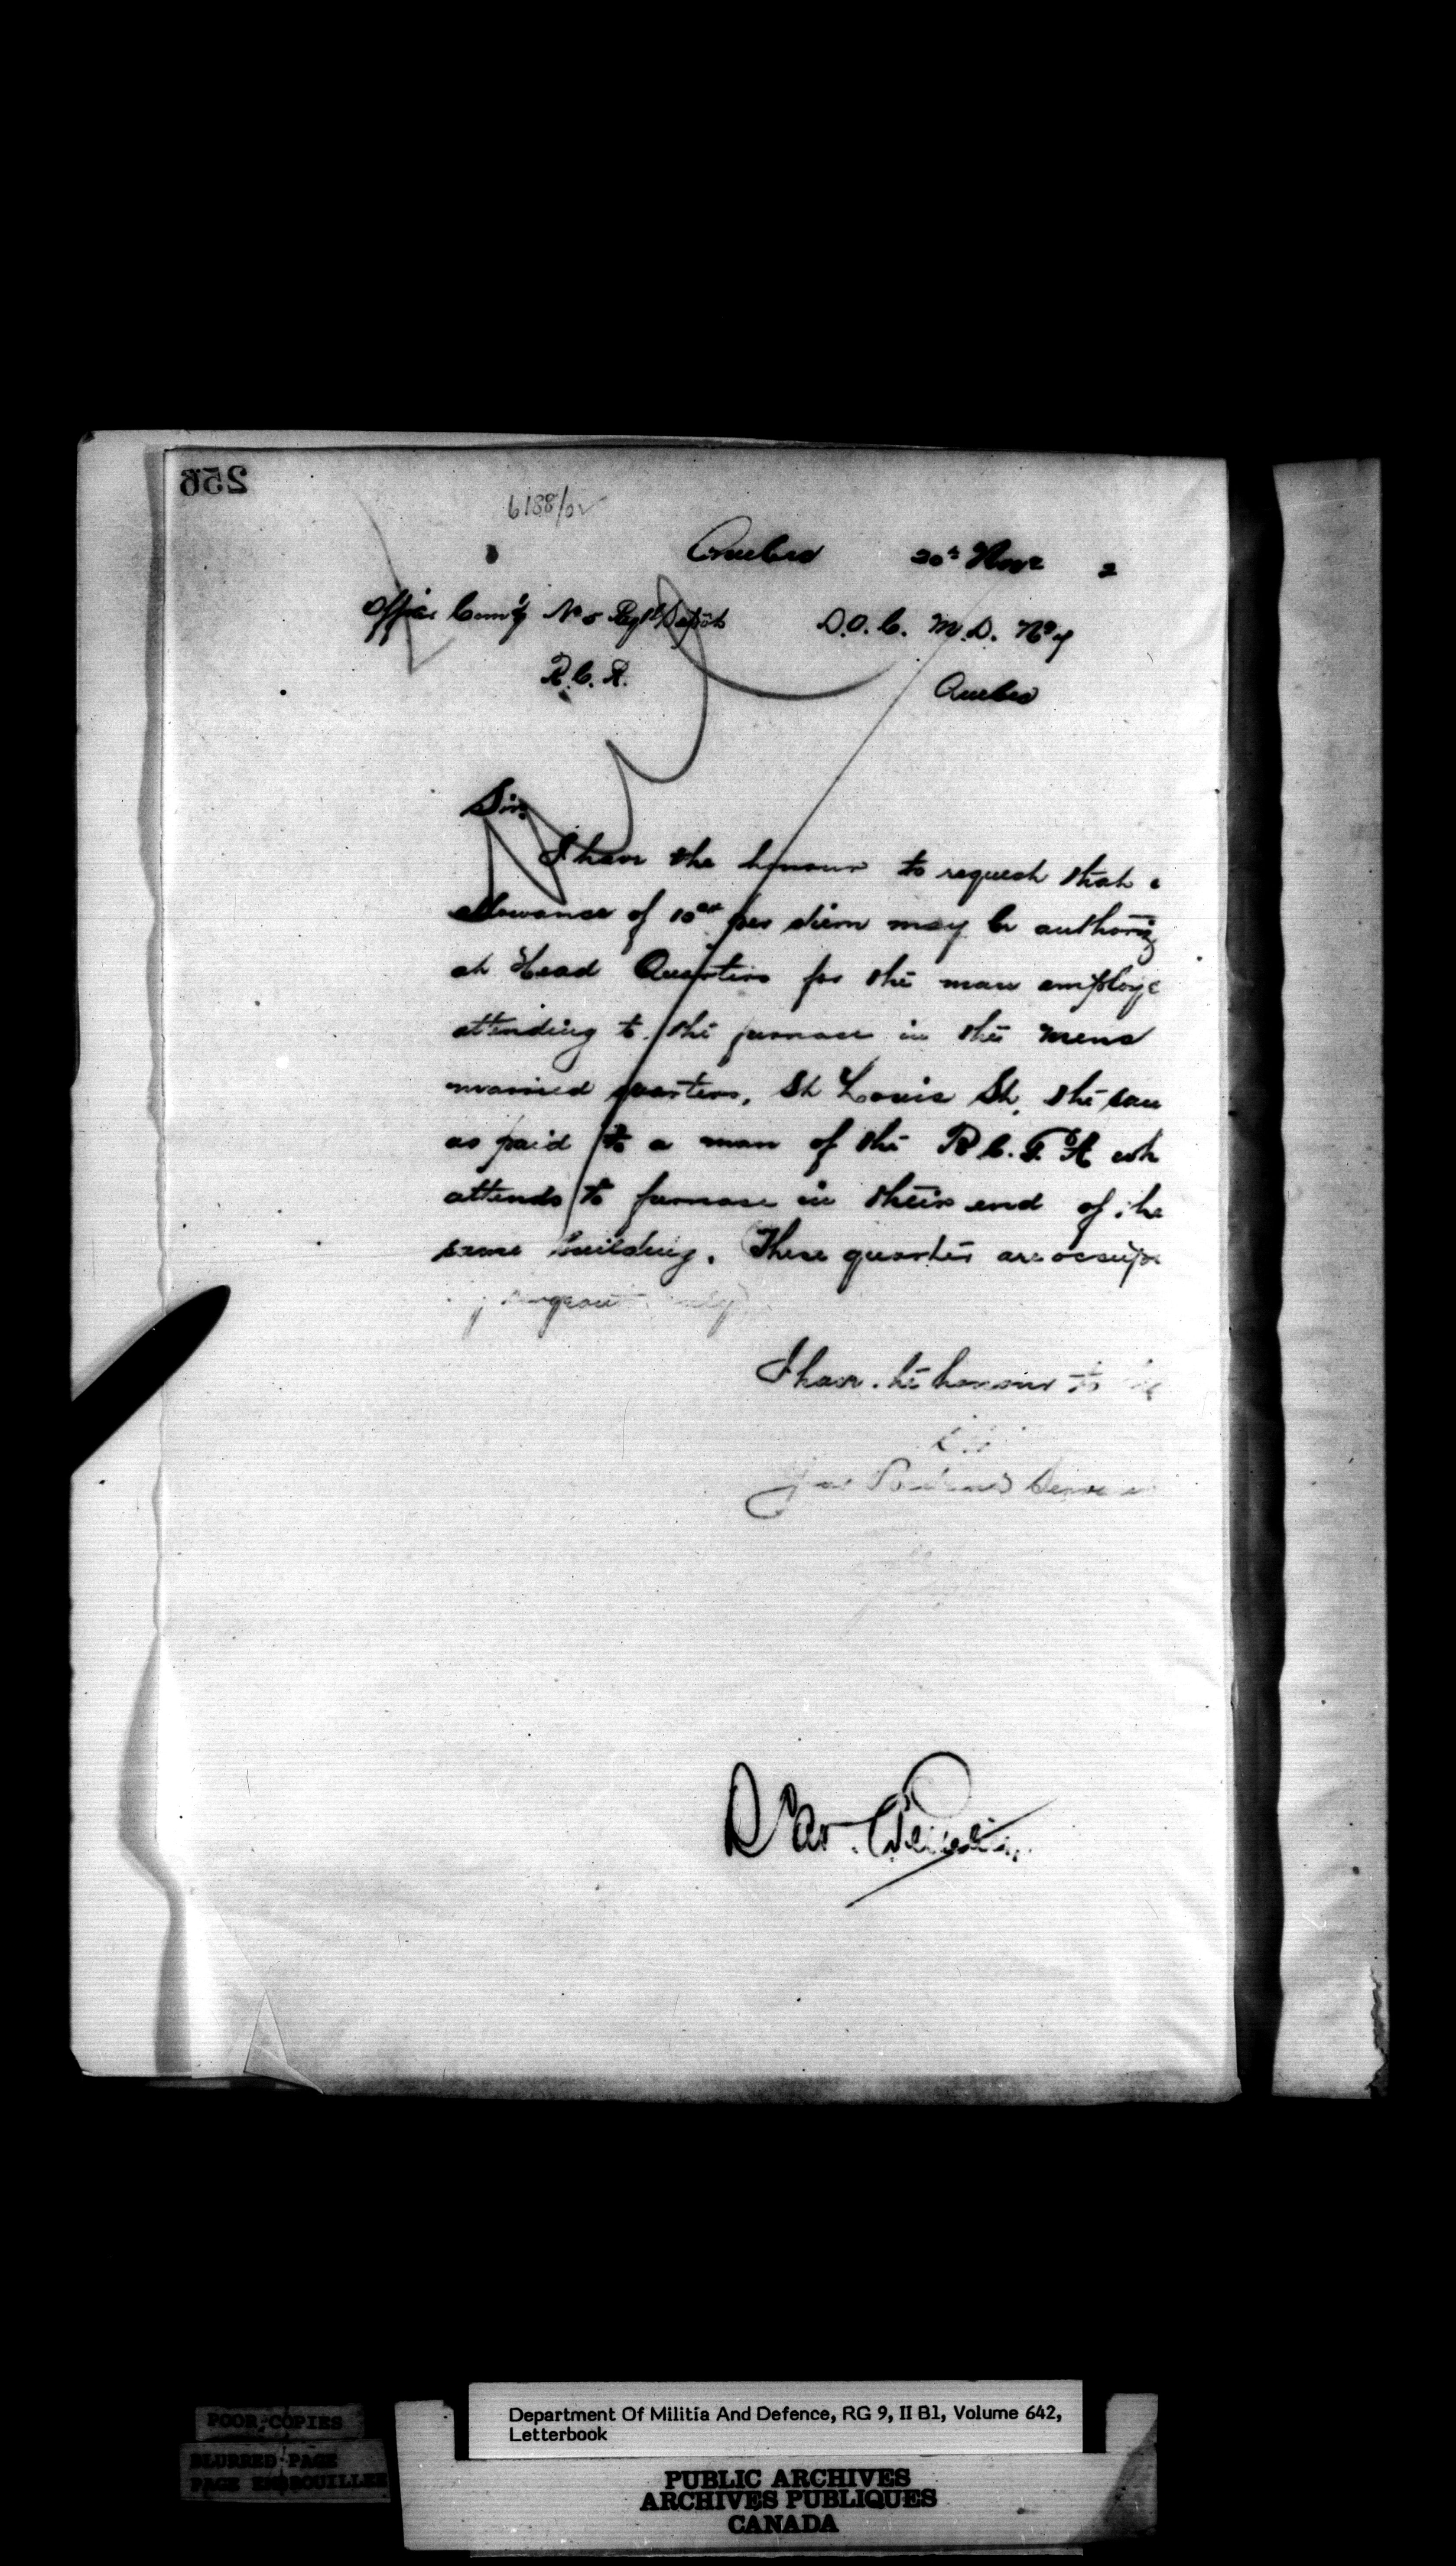 256
6188/02
Quebec 20th Novr 2
Officer Comd'g No 5 Reg'l Depôt D.O.C. M.D. No 7
R.C.R. Quebec
Sir,
I have the honour to request that
allowance of 10cts per diem may be authoriz
at Head Quarters for the man employe
attending to the furnace in the mens
married quarters, St Louis St, the sam
as paid to a man of the R.C.G.A wh
attends to furnace in their end of the
same building. These quarters are occupi
I have the honour to be
Sir
Your Obedient Servant
Department Of Militia And Defence, RG 9, II B1, Volume 642,
Letterbook
POOR COPIES
BLURRED PAGE
PAGE EMBROUILLEE
PUBLIC ARCHIVES
ARCHIVES PUBLIQUES
CANADA